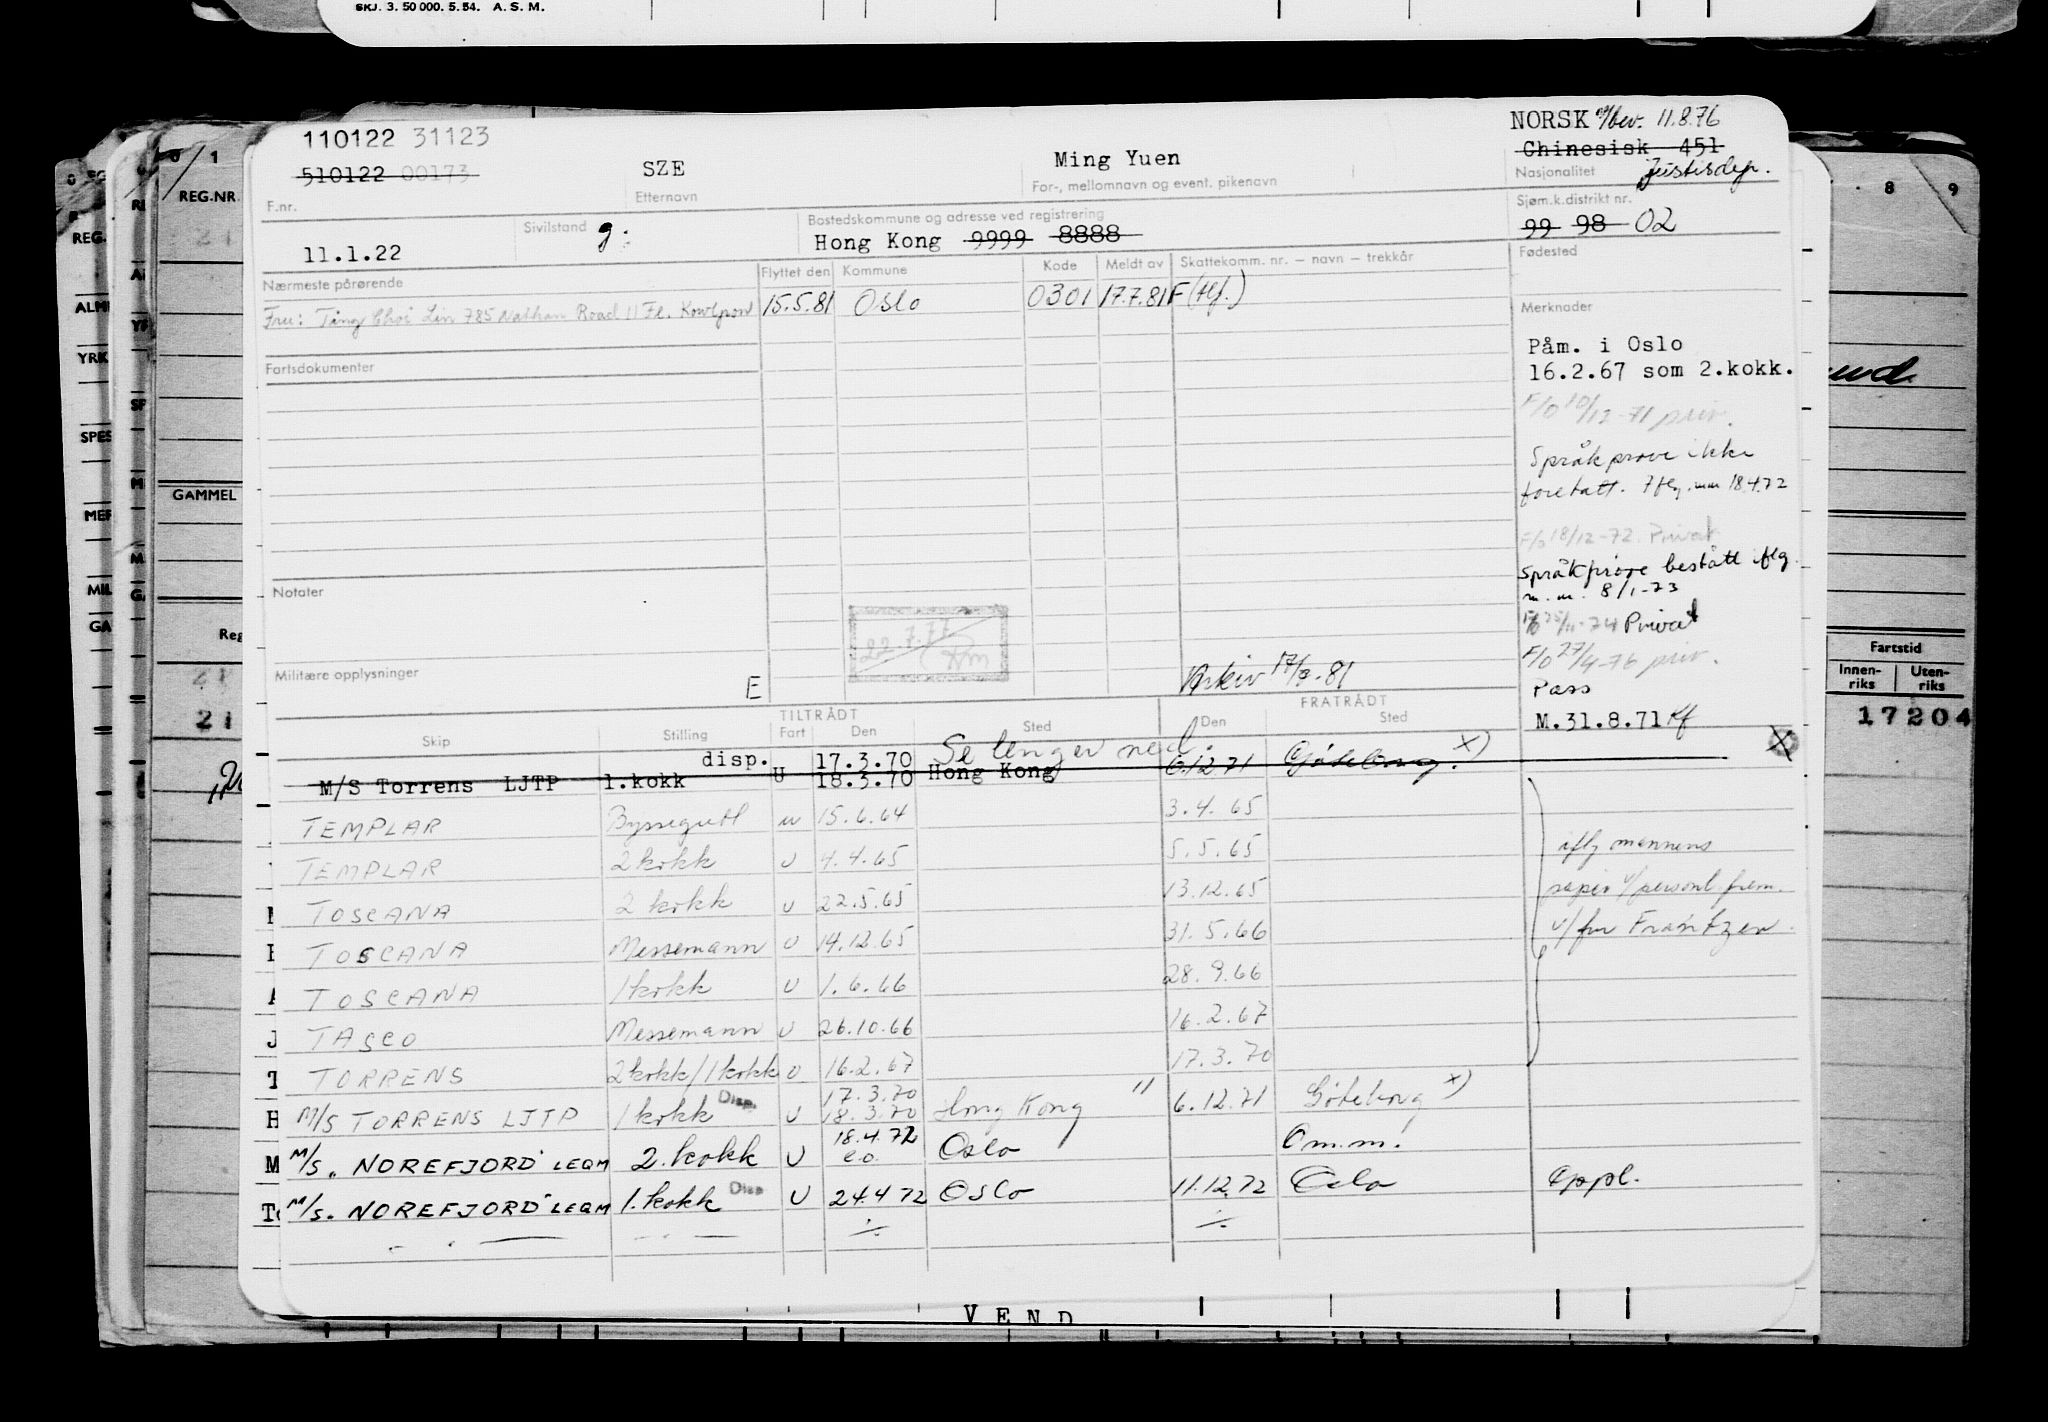 SKJ. 3. 50 000. 5. 54. A. S. M.
110122 31123
510122 00173
F.nr.
SZE
Etternavn
Ming Yuen
For-, mellomnavn og event. pikenavn
NORSK 11.8.76
Chinesisk 451
Nasjonalitet Justisdep.
11.1.22
Sivilstand g.
Bostedskommune og adresse ved registrering
Hong Kong 9999 8888
Sjøm.k.distrikt nr.
99 98 02
Nærmeste pårørende
Flyttet den Kommune Kode Meldt av Skattekomm. nr. – navn – trekkår
Fødested
Fru: Tang Choi Lin 785 Nathan Road 11 Fl. 15.5.81 Oslo 0301 17.7.81 F (tlf.)
Fartsdokumenter
Merknader
Påm. i Oslo
16.2.67 som 2.kokk.
F/O 10/12-71 priv.
Språkprøve ikke
foretatt. 18.4.72
F/O 18/12-72 Privat
Språkprøve bestått iflg.
m.m. 8/1-73
Privat
F/O 27/4-76 priv.
Pass
M.31.8.71
Notater
22.7.77
Militære opplysninger
E
Arkiv
TILTRÅDT FRATRÅDT
Skip Stilling Fart Den Sted Den Sted
disp. 17.3.70 Se lenger ned
M/S Torrens LJTP 1.kokk U 18.3.70 Hong Kong 6.12.71 Göteborg. x)
TEMPLAR Byssegutt u 15.6.64 3.4.65
TEMPLAR 2kokk U 4.4.65 5.5.65
TOSCANA 2 kokk U 22.5.65 13.12.65
TOSCANA Messemann U 14.12.65 31.5.66
TOSCANA 1kokk U 1.6.66 28.9.66
TASCO Messemann U 26.10.66 16.2.67
TORRENS 2kokk/1kokk U 16.2.67 17.3.70
iflg mannens
papir v/personl. frem.
v/fru Frantzen.
17.3.70
M/S TORRENS LJTP 1 kokk Disp. U 18.3.70 Hong Kong " 6.12.71 Göteborg x)
18.4.72
M/S. "NOREFJORD" LEQM 2. kokk U e.o. Oslo Om.m.
M/S. "NOREFJORD" LEQM 1. kokk Disp U 24.4 72 Oslo 11.12.72 Oslo Oppl.
VEND
REG.NR.
GAMMEL
0 1
8 9
Fartstid
Innen-
riks
Uten-
riks
17204
21